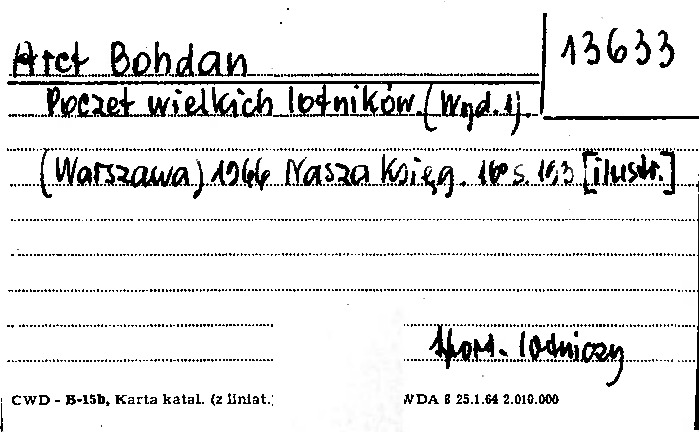 Arct Bohdan
13633
Poczet wielkich lotników. (Wyd. 1).
(Warszawa) 1966 Nasza Księg. 16° s. 163 [ilustr.]
sport. lotniczy
CWD - B-15b, Karta katal. (z liniat.
WDA 8 25.1.64 2.010.000